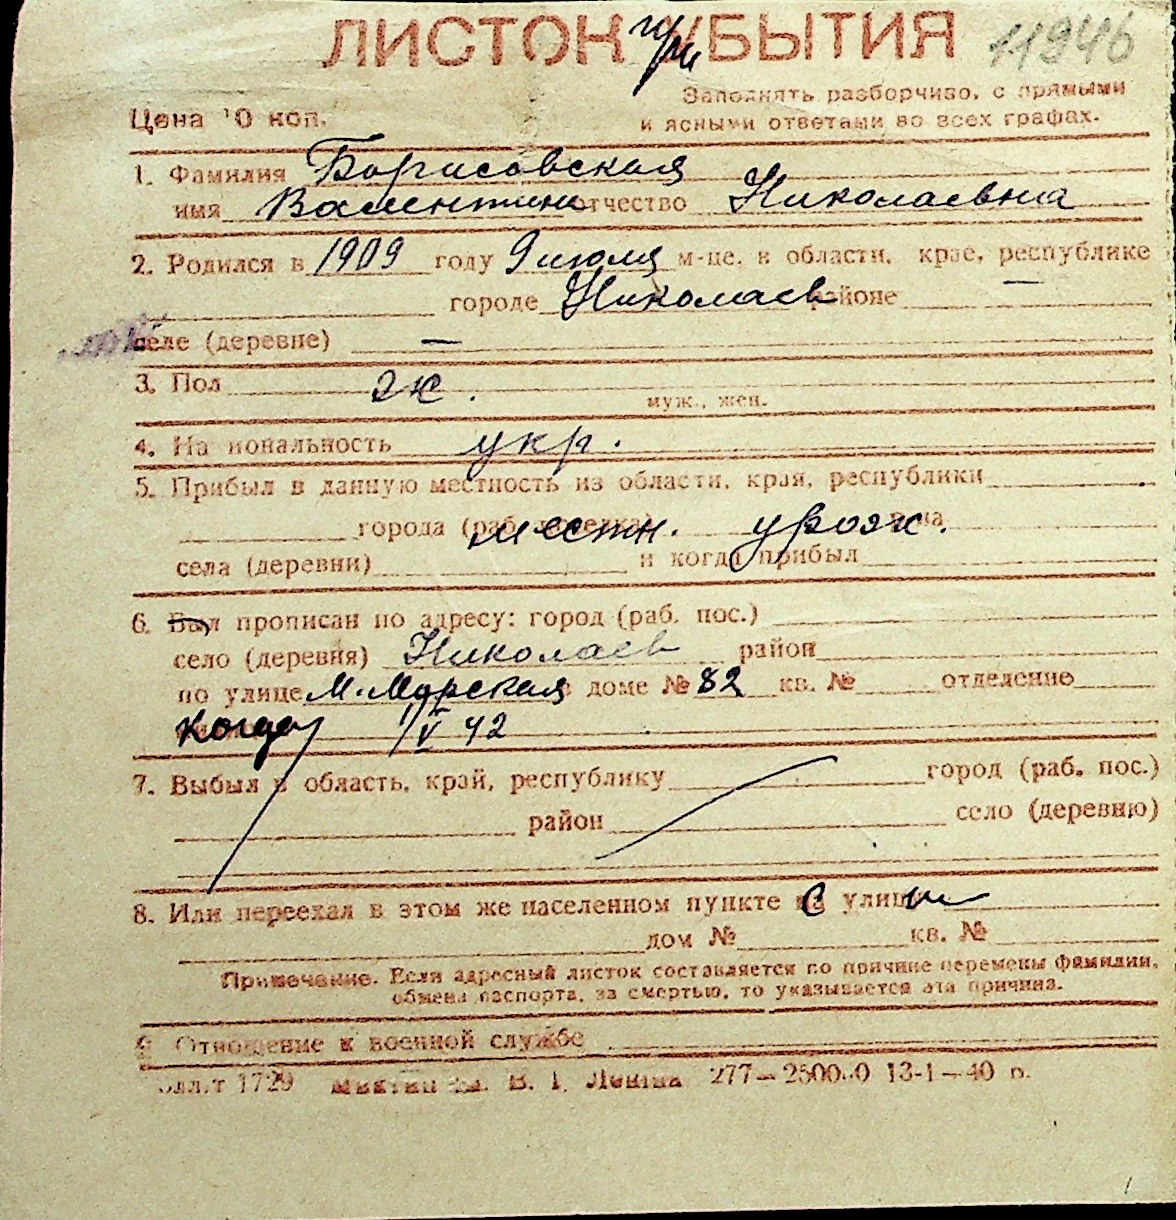 ЛИСТОК при УБЫТИЯ 11946
Заполнять разборчиво, с прямыми
Цена 10 коп.
и ясными ответами во всех графах.
1. Фамилия Борисовская
имя Валентин отчество Николаевна
2. Родился в 1909 году 9 июля м-це, в области, крае, республике
городе Николаев районе —
селе (деревне) —
3. Пол ж.
муж., жен.
4. Национальность укр.
5. Прибыл в данную местность из области, края, республики
города (раб. поселка) местн. урож.
села (деревни) и когда прибыл
6. Был прописан по адресу: город (раб. пос.)
село (деревня) Николаев район
по улице М. Морская в доме № 82 кв. № отделение
когда 1/V 42
7. Выбыл в область, край, республику город (раб. пос.)
район село (деревню)
8. Или переехал в этом же населенном пункте с улицы
дом № кв. №
Примечание. Если адресный листок составляется по причине перемены фамилии,
обмена паспорта, за смертью, то указывается эта причина.
9. Отношение к военной службе
1729 В. И. Ленина 277— 13-1—40 г.